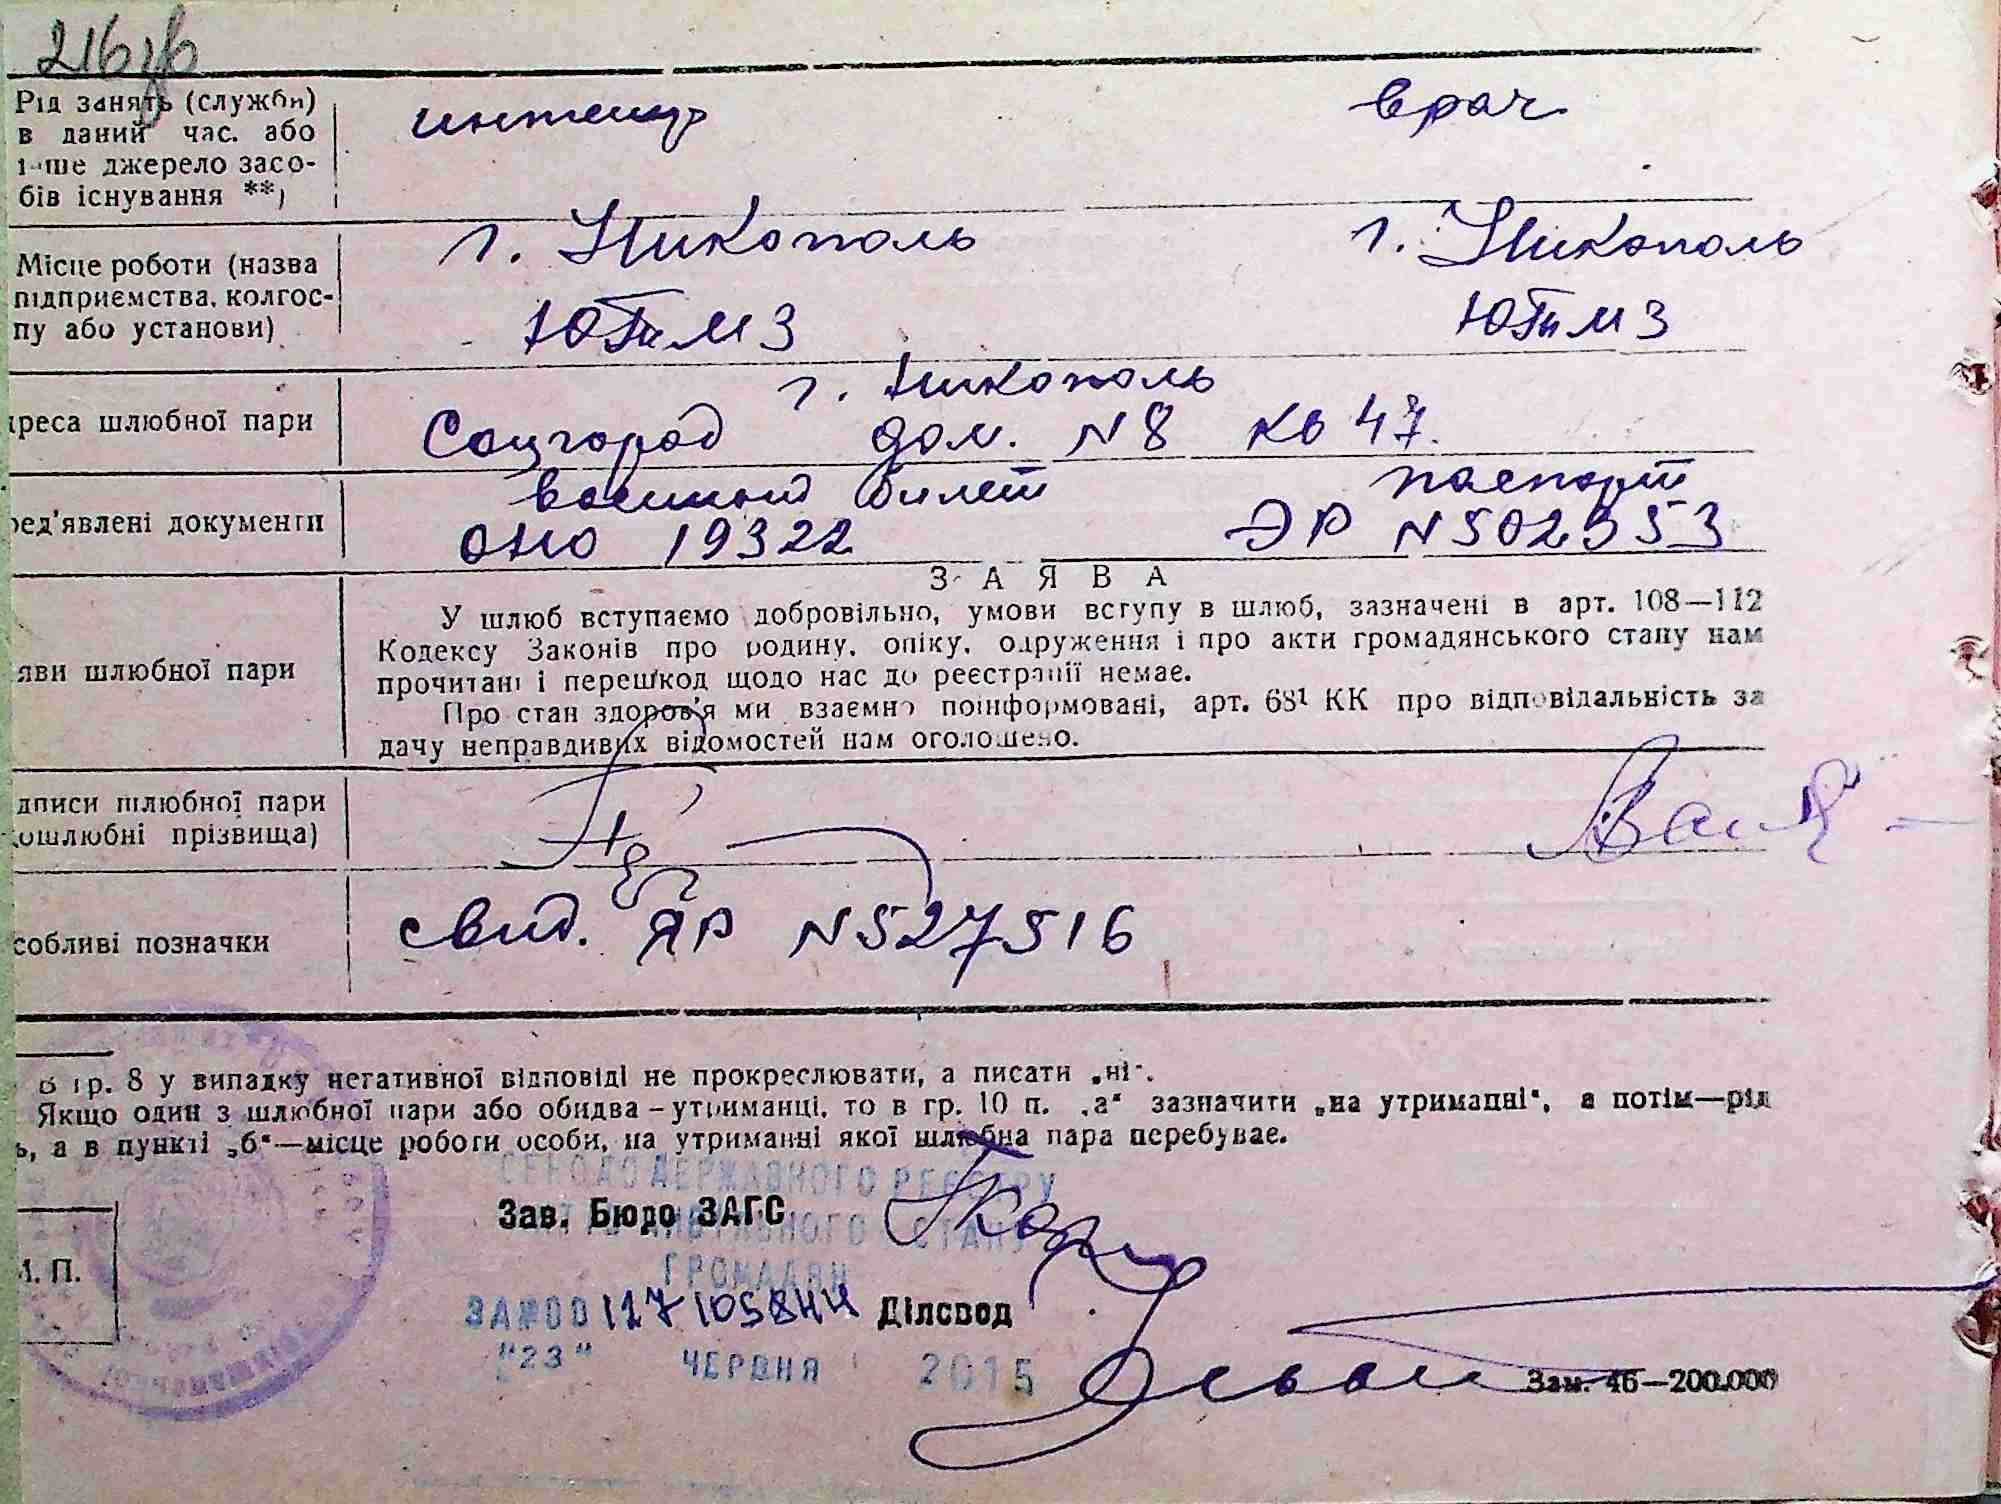 216зв
Рід занять (служби)
в даний час. або
інше джерело засо-
бів існування **)
инженер
врач
Місце роботи (назва
підприємства, колгос-
пу або установи)
г. Никополь
ЮТиМЗ
г. Никополь
ЮТиМЗ
дреса шлюбної пари
г. Никополь
Соцгород дом. N8 кв 47.
ред'явлені документи
военный билет
ОНО 19322
паспорт
ЭР N502953
ЗАЯВА
У шлюб вступаємо добровільно, умови вступу в шлюб, зазначені в арт. 108—112
Кодексу Законів про родину, опіку, одруження і про акти громадянського стану нам
прочитані і перешкод щодо нас до реєстрації немає.
Про стан здоров'я ми взаємно поінформовані, арт. 68¹ КК про відповідальність за
дачу неправдивих відомостей нам оголошено.
яви шлюбної пари
дписи шлюбної пари
дошлюбні прізвища)
собливі позначки
свид. ЯР N527516
В гр. 8 у випадку негативної відповіді не прокреслювати, а писати „ні".
Якщо один з шлюбної пари або обидва – утриманці, то в гр. 10 п. „а" зазначити „на утриманні", а потім—рід
ь, а в пункті „б"—місце роботи особи, на утриманні якої шлюбна пара перебуває.
ДО ДЕРЖАВНОГО РЕЄСТРУ
Зав. Бюро ЗАГС
ЦИВІЛЬНОГО СТАНУ
ГРОМАДЯН
М. П.
ЗА №00117105844
Діловод
"23" ЧЕРВНЯ 2015
Зам. 46—200.000